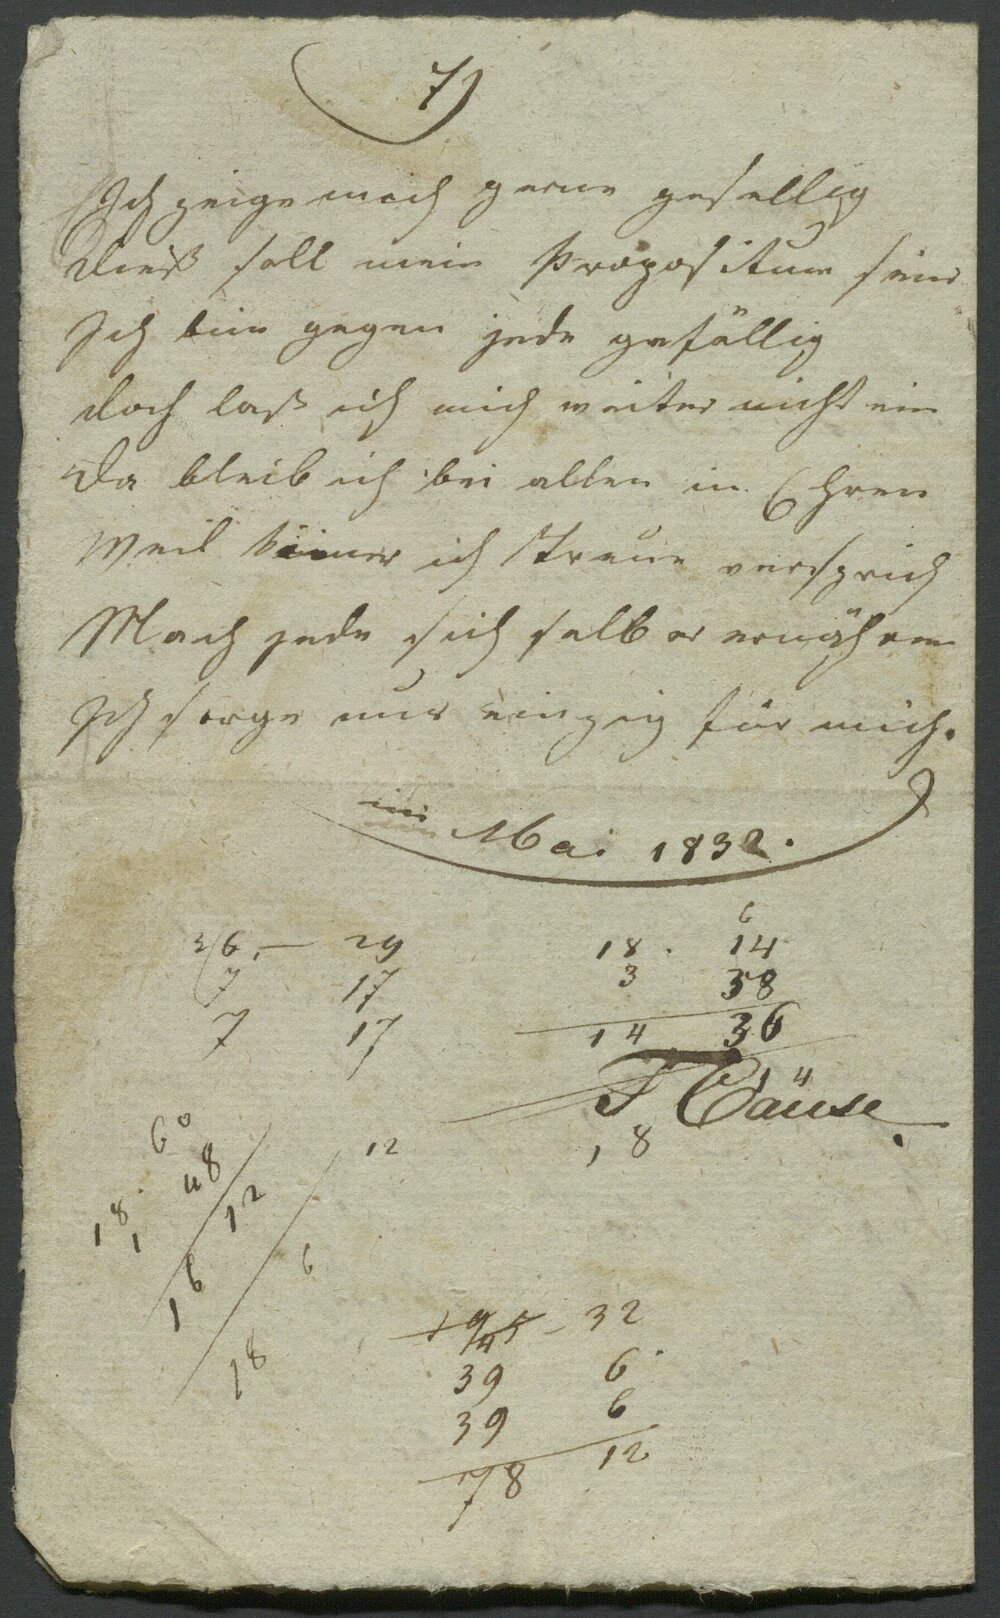 7)
Ich zeige mich gerne gesellig
dieß soll mein Propositum sein
Ich bin gegen jede gefällig
doch laß ich mich weiter nicht ein
Da bleib ich bei allen in Ehren
Weil keiner ich Treue versprich
Mach jede sich selber ernähren
Ich sorge nur einzig für mich.
im Mai 1832.
6
26.— 29 18. 14
7 17 3 38
7 17 14 36
F Cäuse
60 48 12 18
18. 1 12
16 6
18
32
39 6
39 6
78 12